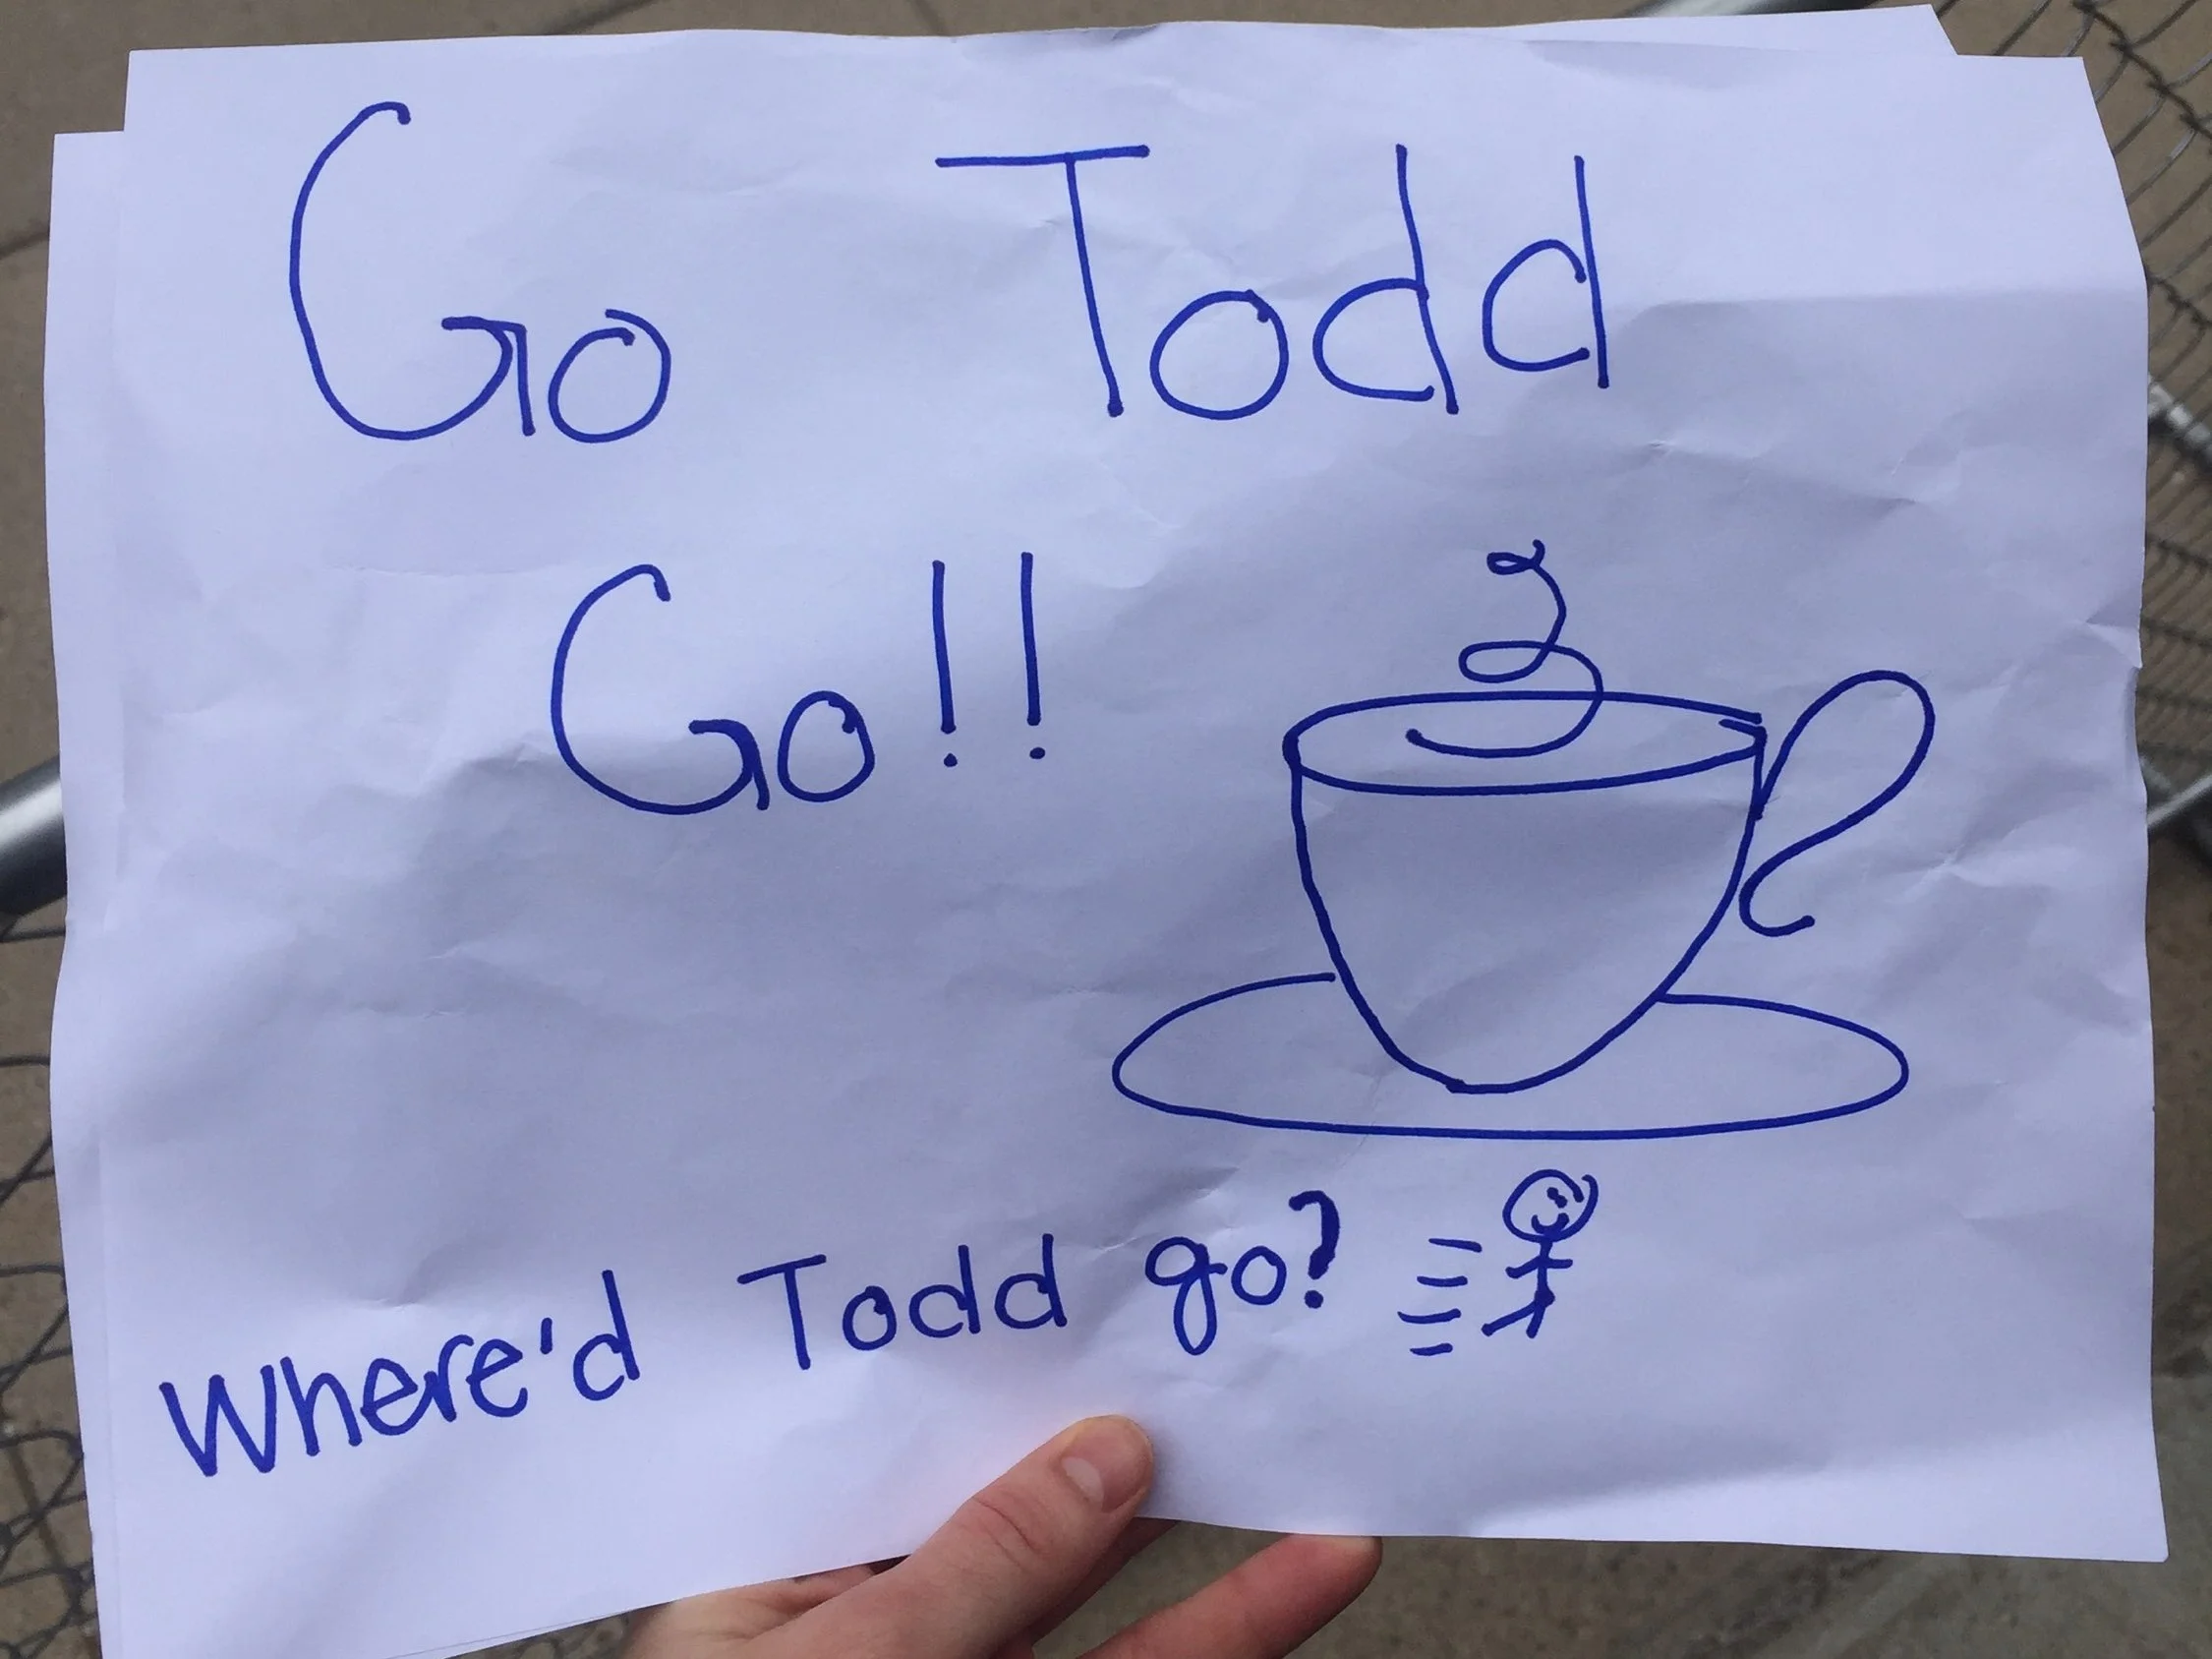 Go Todd
Go!!
Where'd Todd go?